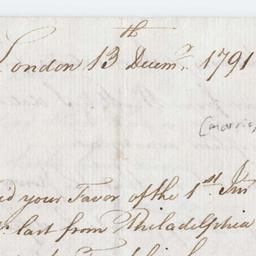 London 13th Decemr 1791
[marria
d your Favor of the 1st In
last from Philadelphia